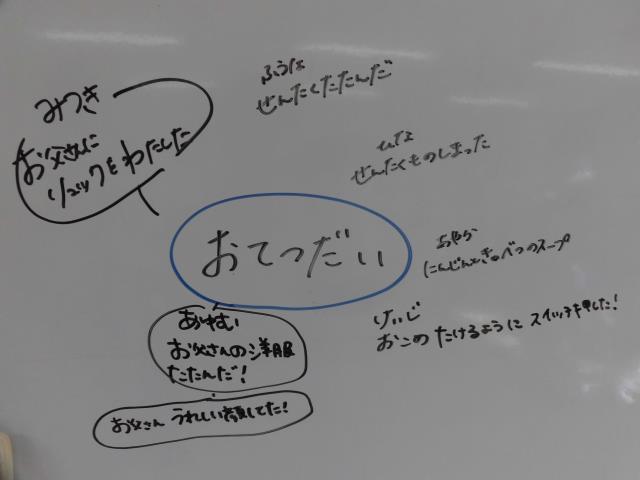 みつき
お父さんに
リュックをわたした
ふうな
せんたくたたんだ
ひな
せんたくものしまった
おてつだい
あやか
にんじんときゃべつのスープ
けいじ
おこめ たけるように スイッチ押した!
あゆむ
お父さんの洋服
たたんだ!
お父さん うれしい顔してた!